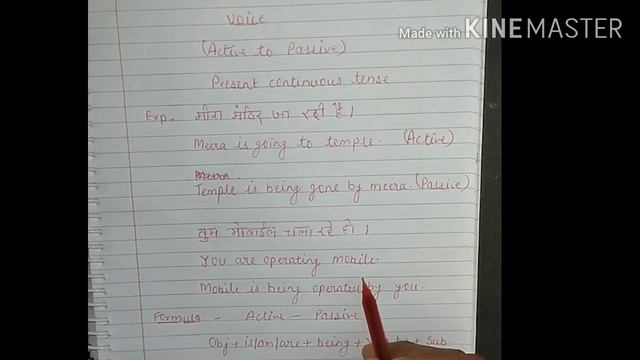 Made with KINEMASTER
Voice
(Active to Passive)
Present continuous tense
Exp- मीरा मंदिर जा रही है।
Meera is going to temple. (Active)
Temple is being gone by meera. (Passive)
तुम मोबाईल चला रहे हो ।
You are operating mobile.
Mobile is being operated by you.
Formula - Active - Passive
Obj + is/am/are + being + + Sub